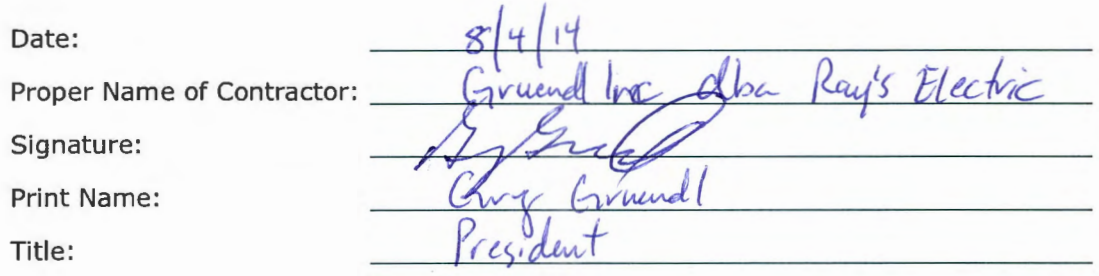 Date: 8/4/14
Proper Name of Contractor: Gruendl Inc dba Ray's Electric
Signature:
Print Name: Greg Gruendl
Title: President